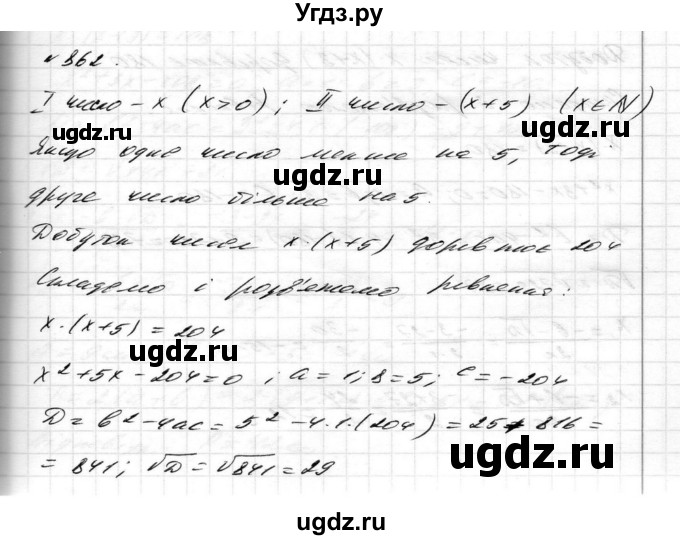 Угдз.ру
№ 862.
I число – x (x>0); II число – (x+5) (x∈N)
Якщо одне число менше на 5, тоді
друге число більше на 5.
Добуток чисел x·(x+5) дорівнює 204
Складемо і розв'яжемо рівняння:
x·(x+5) = 204
x²+5x–204=0; a=1; в=5; c=–204
D = в²–4ac = 5²–4·1·(204) = 25+816 =
= 841; √D = √841 = 29
ugdz.ru
ugdz.ru
ugdz.ru
ugdz.ru
ugdz.ru
ugdz.ru
ugdz.ru
ugdz.ru
ugdz.ru